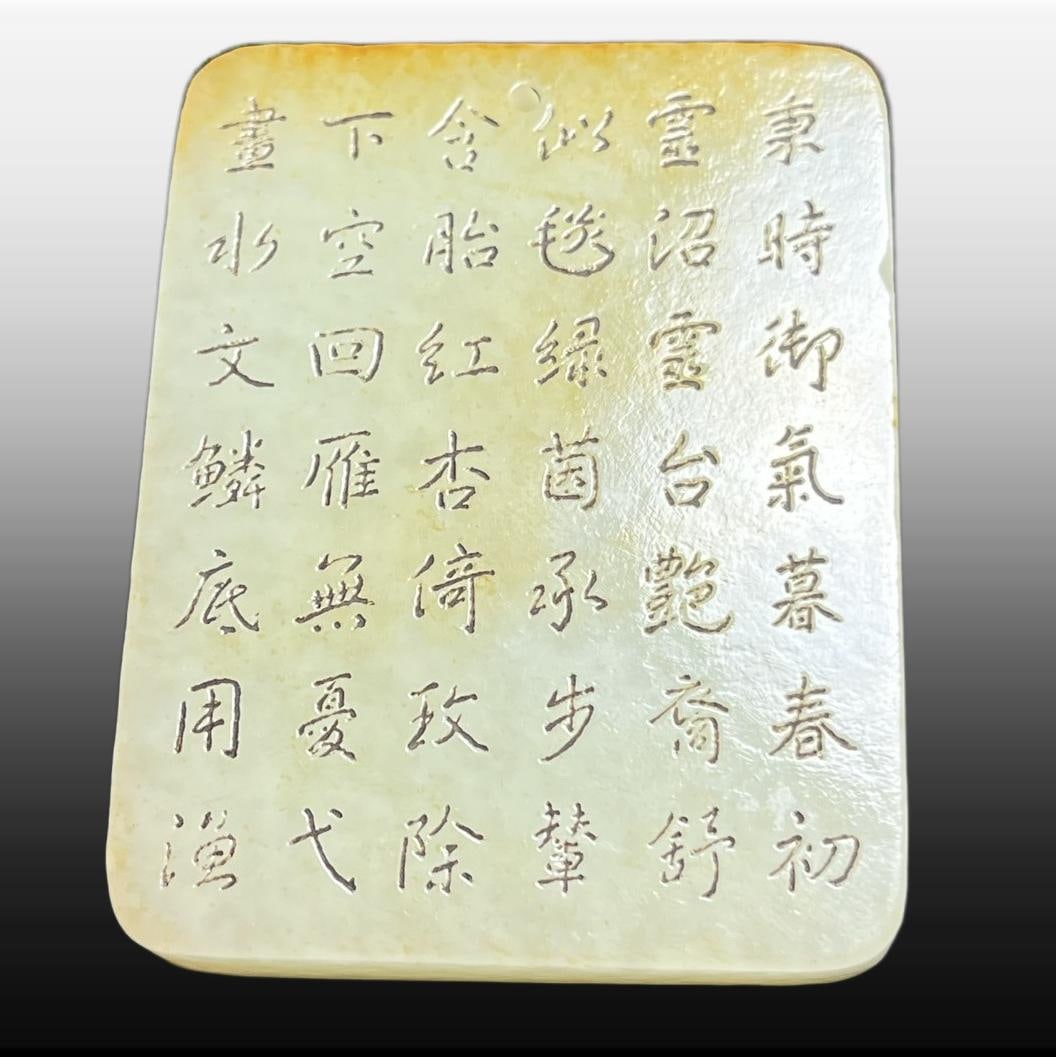 秉時御氣暮春初
靈沼靈台艷裔舒
似毯綠茵承步輦
含胎紅杏倚玫除
下空回雁無憂弋
畫水文鱗底用漁